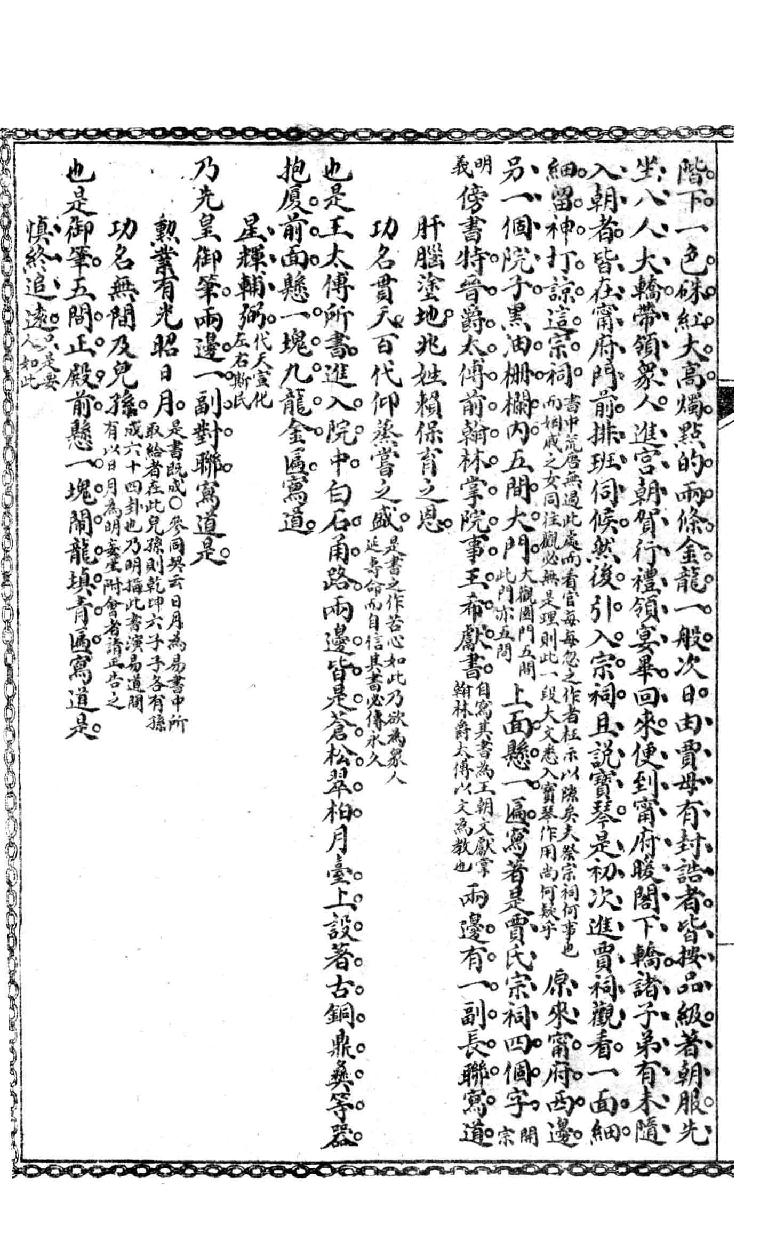 階下一色硃紅大高燭點的兩條金龍一般次日由賈母有封誥者皆按品級著朝服先
坐八人大轎帶領衆人進宮朝賀行禮領宴畢回來便到甯府暖閣下轎諸子弟有未隨
入朝者皆在甯府門前排班伺候然後引入宗祠且説寶琴是初次進賈祠觀看一面細
細留神打諒這宗祠書中荒唐無過此處而看官每每忽之作者枉示以隙矣夫祭宗祠何事也而姻戚之女同往觀必無是理則此一段大文悉入寶琴作用尚何疑乎原來甯府西邊
另一個院子黑油柵欄内五間大門大觀園門五間此門亦五間上面懸一匾寫著是賈氏宗祠四個字開宗
明義傍書特晉爵太傅前翰林掌院事王希獻書自寫其書為王朝文獻掌翰林爵太傅以文為教也兩邊有一副長聯寫道
肝腦塗地兆姓賴保育之恩
功名貫天百代仰蒸嘗之盛是書之作苦心如此乃欲為衆人延壽命而自信其書必傳永久
也是王太傅所書進入院中白石甬路兩邊皆是蒼松翠柏月臺上設著古銅鼎彝等器
抱厦前面懸一塊九龍金匾寫道
星輝輔弼代天宣化左右斯民
乃先皇御筆兩邊一副對聯寫道是
勲業有光昭日月是書既成○參同契云日月為易書中所
功名無間及兒孫取給者在此兒孫則乾坤六子子各有孫成六十四卦也乃明揭此書演易道間有以日月為明妄生附會者請正告之
也是御筆五間正殿前懸一塊鬧龍填青匾寫道是
慎終追遠只是要人如此